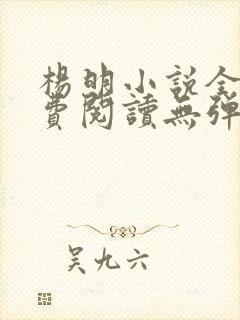 楊明小說全
費閱讀無彈
吴九六